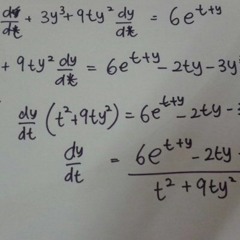 dy/dt + 3y³ + 9ty² dy/dt = 6e^(t+y)
+ 9ty² dy/dt = 6e^(t+y) - 2ty - 3y³
dy/dt (t² + 9ty²) = 6e^(t+y) - 2ty -
dy/dt = (6e^(t+y) - 2ty -)/(t² + 9ty²)